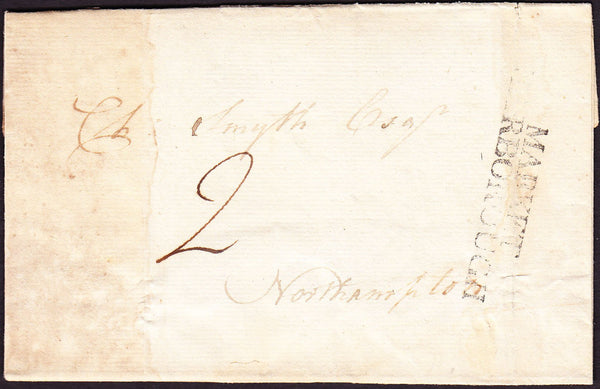 Ch Smyth Esqr
2
Northampton
MARKET
RBOROUGH